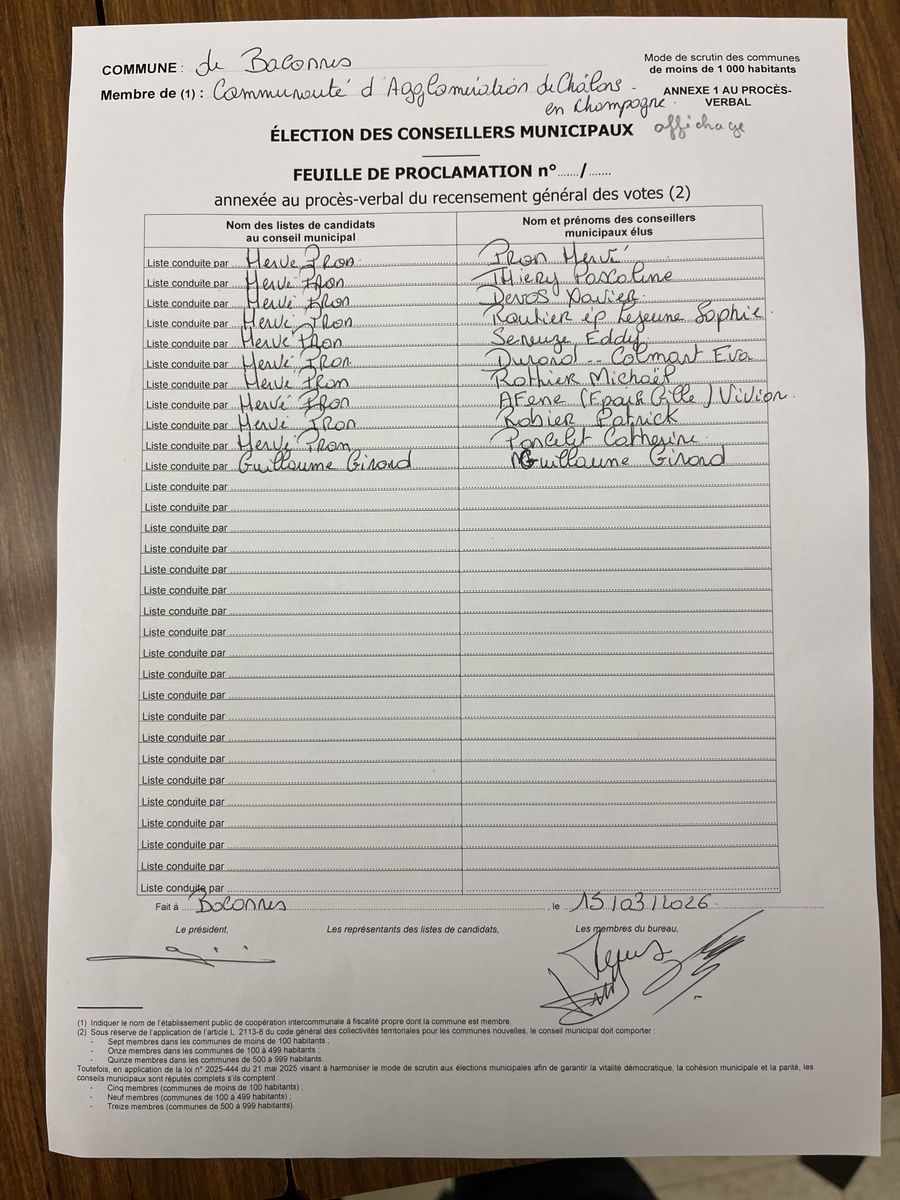 COMMUNE : de Baconnes
Mode de scrutin des communes
de moins de 1 000 habitants
Membre de (1) : Communauté d'Agglomération de Châlons
en Champagne.
ANNEXE 1 AU PROCÈS-
VERBAL
ÉLECTION DES CONSEILLERS MUNICIPAUX
affichage
FEUILLE DE PROCLAMATION n°....../.......
annexée au procès-verbal du recensement général des votes (2)
Nom des listes de candidats
au conseil municipal
Nom et prénoms des conseillers
municipaux élus
Liste conduite par Hervé PRON Pron Hervé
Liste conduite par Hervé PRON Thiery Pascaline
Liste conduite par Hervé PRON Devos Xavier
Liste conduite par Hervé PRON Routier ép Lejeune Sophie
Liste conduite par Hervé PRON Eddy
Liste conduite par Hervé PRON Durand -- Colmart Eva
Liste conduite par Hervé PRON Rothier Michaël
Liste conduite par Hervé PRON AFene ( Gille ) Vivian
Liste conduite par Hervé PRON Robier Patrick
Liste conduite par Hervé PRON Poncelet Catherine
Liste conduite par Guillaume Girard Guillaume Girard
Liste conduite par
Liste conduite par
Liste conduite par
Liste conduite par
Liste conduite par
Liste conduite par
Liste conduite par
Liste conduite par
Liste conduite par
Liste conduite par
Liste conduite par
Liste conduite par
Liste conduite par
Liste conduite par
Liste conduite par
Liste conduite par
Liste conduite par
Liste conduite par
Liste conduite par
Liste conduite par
Fait à Baconnes, le 15/03/2026
Le président,
Les représentants des listes de candidats,
Les membres du bureau,
(1) Indiquer le nom de l'établissement public de coopération intercommunale à fiscalité propre dont la commune est membre.
(2) Sous réserve de l'application de l'article L. 2113-8 du code général des collectivités territoriales pour les communes nouvelles, le conseil municipal doit comporter :
- Sept membres dans les communes de moins de 100 habitants ;
- Onze membres dans les communes de 100 à 499 habitants ;
- Quinze membres dans les communes de 500 à 999 habitants.
Toutefois, en application de la loi n° 2025-444 du 21 mai 2025 visant à harmoniser le mode de scrutin aux élections municipales afin de garantir la vitalité démocratique, la cohésion municipale et la parité, les
conseils municipaux sont réputés complets s'ils comptent :
- Cinq membres (communes de moins de 100 habitants) ;
- Neuf membres (communes de 100 à 499 habitants) ;
- Treize membres (communes de 500 à 999 habitants).